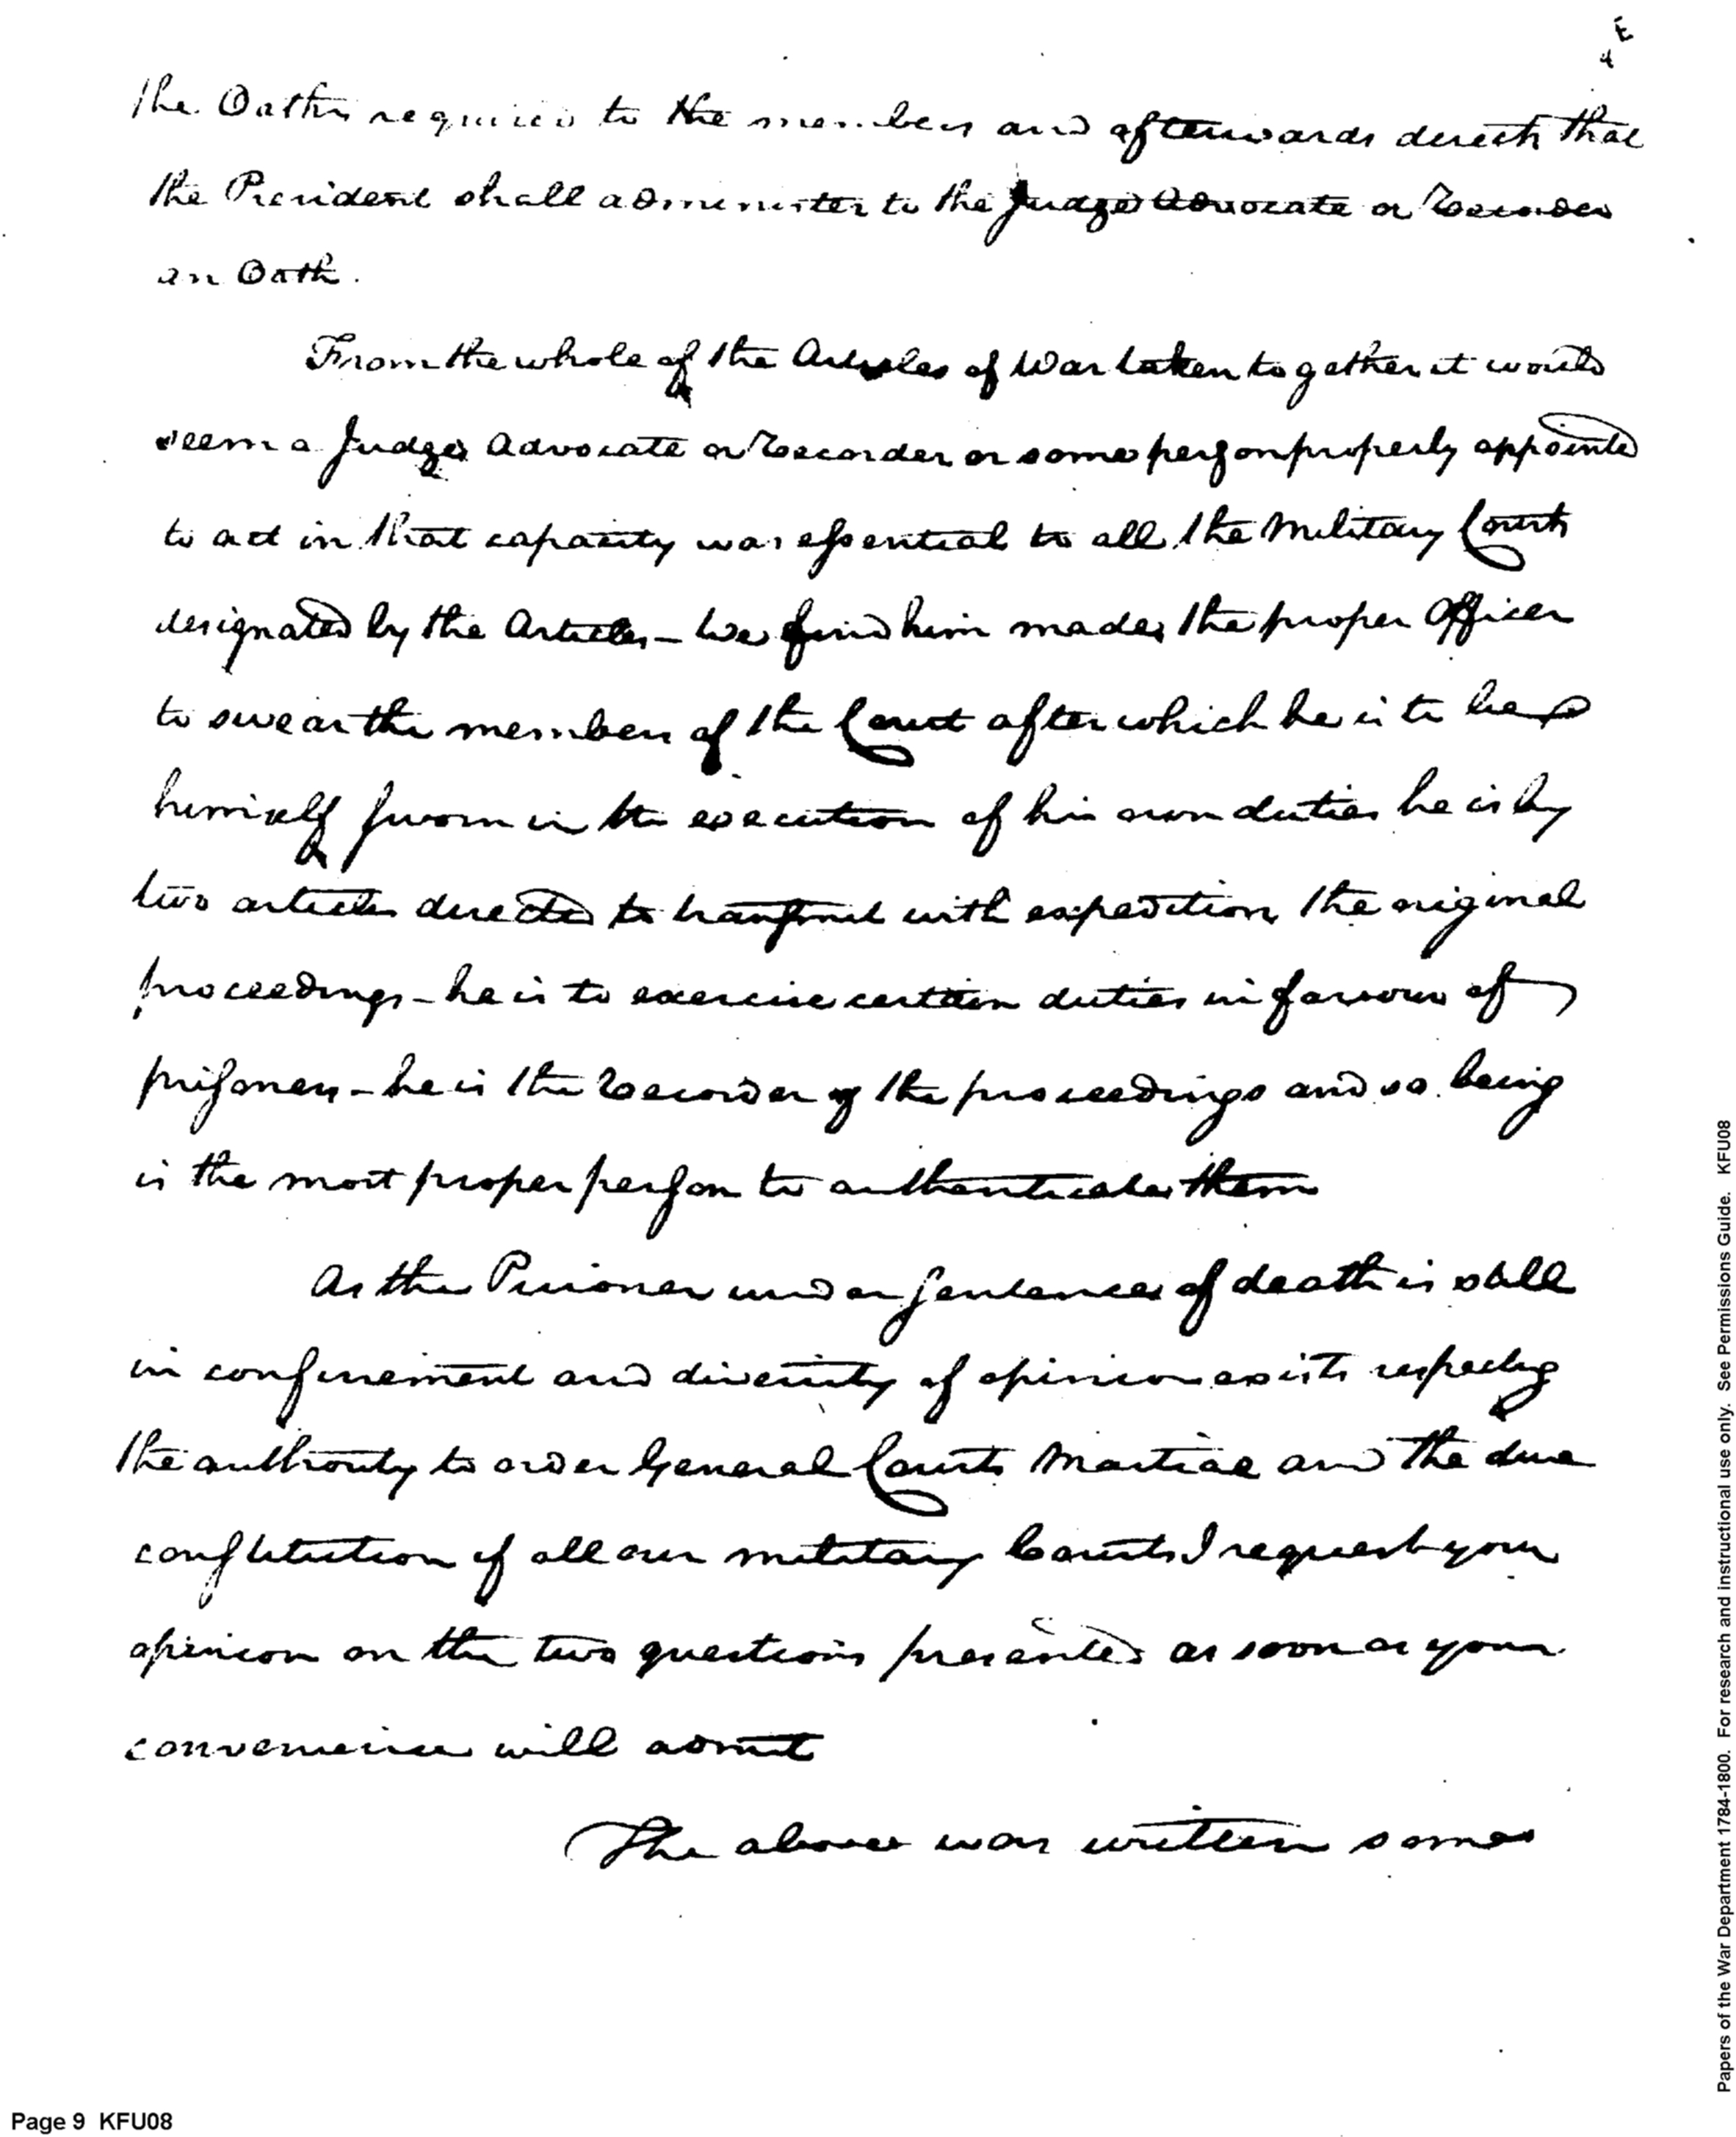 the Oaths required to the members and afterwards directs that
the President shall administer to the Judge Advocate or Recorder
an Oath.
From the whole of the Articles of War taken together it would
seem a Judge Advocate or Recorder or some person properly appointed
to act in that capacity was essential to all the Military Courts
designated by the Articles – We find him made the proper Officer
to swear the members of the Court after which he is to be
himself sworn in the execution of his own duties he is by
two articles directed to transmit with expedition the original
proceedings – he is to exercise certain duties in favour of
prisoners – he is the Recorder of the proceedings and so being
is the most proper person to authenticate them
As the Prisoner under sentence of death is still
in confinement and diversity of opinion exists respecting
the authority to order General Courts Martial and the due
constitution of all our military Courts I request your
opinion on the two questions presented as soon as your
convenience will admit
The above was written some
Page 9 KFU08
Papers of the War Department 1784-1800. For research and instructional use only. See Permissions Guide. KFU08